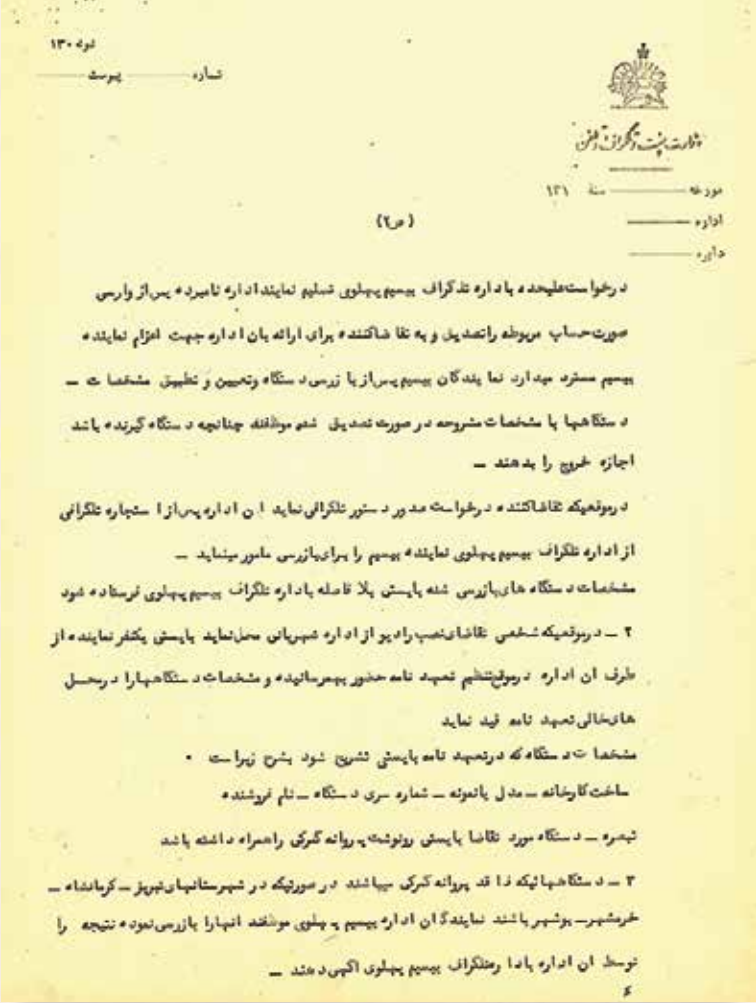 نمونه ۱۳۰
شماره ــــ پیوست ــــ
وزارت پست و تلگراف و تلفن
مورخه ــــ سنه ۱۳۱
اداره ــــ
دایره ــــ
(ص۲)
درخواست علیحده باداره تلگراف بیسیم پهلوی تسلیم نمایند اداره نامبرده پس از وارسی
صورتحساب مربوطه را تصدیق و به تقاضاکننده برای ارائه بان اداره جهت اعزام نماینده
بیسیم مسترد میدارد نمایندگان بیسیم پس از بازرسی دستگاه وتعیین و تطبیق مشخصات ــ
دستگاهها با مشخصات مشروحه در صورت تصدیق شده موظفند چنانچه دستگاه گیرنده باشد
اجازه خروج را بدهند ــ
درموقعیکه تقاضاکننده درخواست صدور دستور تلگرافی نماید این اداره پس از استجازه تلگرافی
از اداره تلگراف بیسیم پهلوی نماینده بیسیم را برای بازرسی مامور مینماید ــ
مشخصات دستگاه های بازرسی شده بایستی بلا فاصله باداره تلگراف بیسیم پهلوی فرستاده شود
۲ ــ درموقعیکه شخصی تقاضای نصب رادیو از اداره شهربانی محل نماید بایستی یکنفر نماینده از
طرف ان اداره درموقع تنظیم تعهد نامه حضور بهمرسانیده و مشخصات دستگاهها را درمحل
های خالی تعهد نامه قید نماید
مشخصات دستگاه که درتعهد نامه بایستی تشریح شود بشرح زیر است ۰
ساخت کارخانه ــ مدل یا نمونه ــ شماره سری دستگاه ــ نام فروشنده
تبصره ــ دستگاه مورد تقاضا بایستی رونوشت پروانه گمرکی را همراه داشته باشد
۳ ــ دستگاههائیکه فاقد پروانه گمرکی میباشند در صورتیکه در شهرستانهای تبریز ــ کرمانشاه ــ
خرمشهر ــ بوشهر باشند نمایندگان اداره بیسیم پهلوی موظفند انهارا بازرسی نموده نتیجه را
توسط ان اداره باداره تلگراف بیسیم پهلوی اگهی دهند ــ
٤